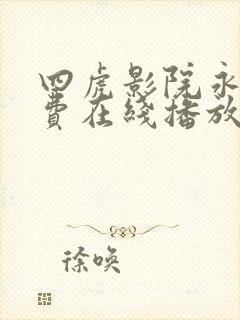 四虎影院永
费在线播放
徐唤